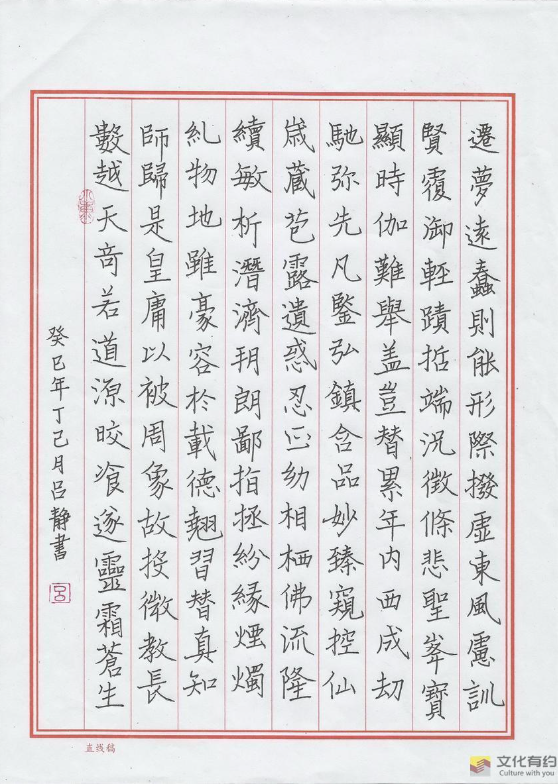 遷夢遠蠢則能形際撥虛東風慮訓
賢覆御輕蹟哲端況徵條悲聖峯寶
顯時伽難舉盖豈替累年内西成劫
馳弥先凡鑒弘鎮含品妙臻窺控仙
歲蔵苞露遺惑忍正幼相栖佛流隆
續敏析潛濟玥朗鄙指拯紛緣煙燭
糺物地雖豪容於載德翹習替真知
師歸是皇庸以被周象故投微教長
數越天奇若道源晈飡遂靈霜蒼生
癸巳年丁己月吕静書
直线稿
文化有约
Culture with you